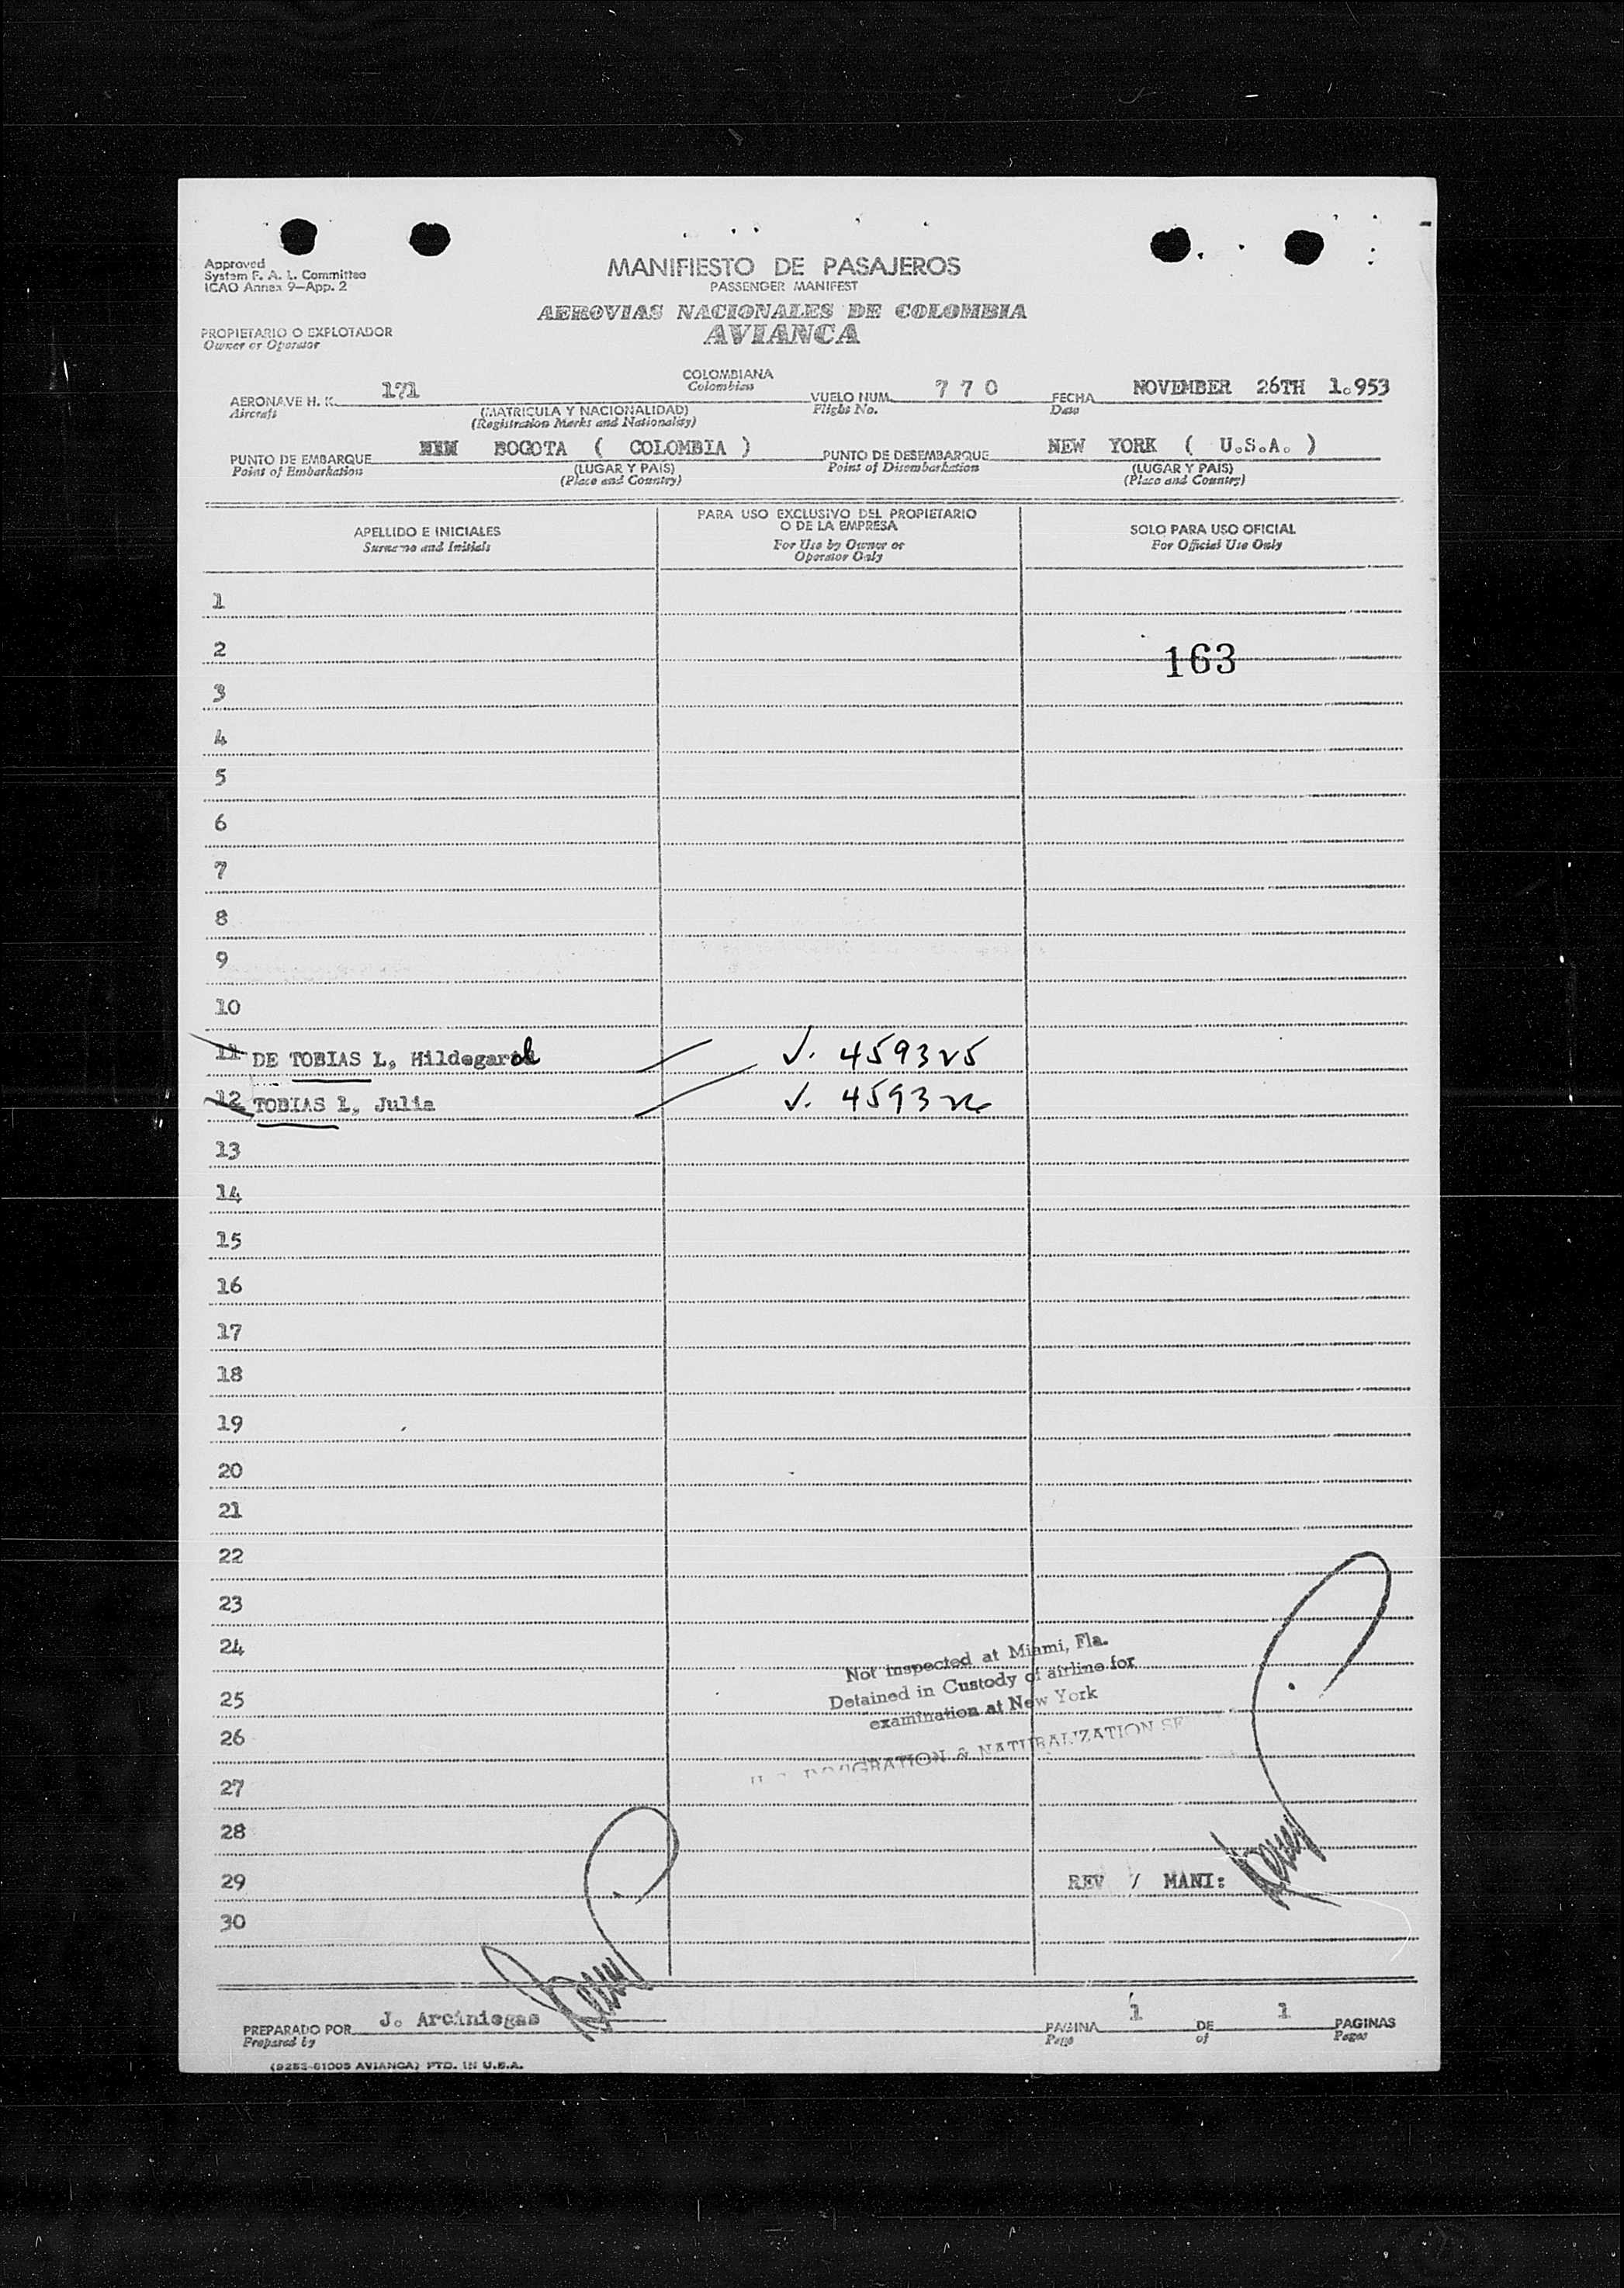 Approved
System F. A. L. Committee
ICAO Annex 9—App. 2
MANIFIESTO DE PASAJEROS
PASSENGER MANIFEST
AEROVIAS NACIONALES DE COLOMBIA
AVIANCA
PROPIETARIO O EXPLOTADOR
Owner or Operator
AERONAVE H. K. 171 COLOMBIANA VUELO NUM. 7 7 0 FECHA NOVEMBER 26TH 1.953
Aircraft Colombian Flight No. Date
(MATRICULA Y NACIONALIDAD)
(Registration Marks and Nationality)
PUNTO DE EMBARQUE BOGOTA ( COLOMBIA ) PUNTO DE DESEMBARQUE NEW YORK ( U.S.A. )
Point of Embarkation (LUGAR Y PAIS) Point of Disembarkation (LUGAR Y PAIS)
(Place and Country) (Place and Country)
APELLIDO E INICIALES PARA USO EXCLUSIVO DEL PROPIETARIO O DE LA EMPRESA SOLO PARA USO OFICIAL
Surname and Initials For Use by Owner or Operator Only For Official Use Only
1
2 163
3
4
5
6
7
8
9
10
11 DE TOBIAS L, Hildegard V. 459325
12 TOBIAS L, Julia V.
13
14
15
16
17
18
19
20
21
22
23
24 Not inspected at Miami, Fla.
25 Detained in Custody of airline for
examination at New York
26 IMMIGRATION & NATURALIZATION
27
28
29 REV / MANI:
30
PREPARADO POR J. Arciniegas PAGINA 1 DE 1 PAGINAS
Prepared by Page of Pages
(9253-61005 AVIANCA) PTD. IN U.S.A.